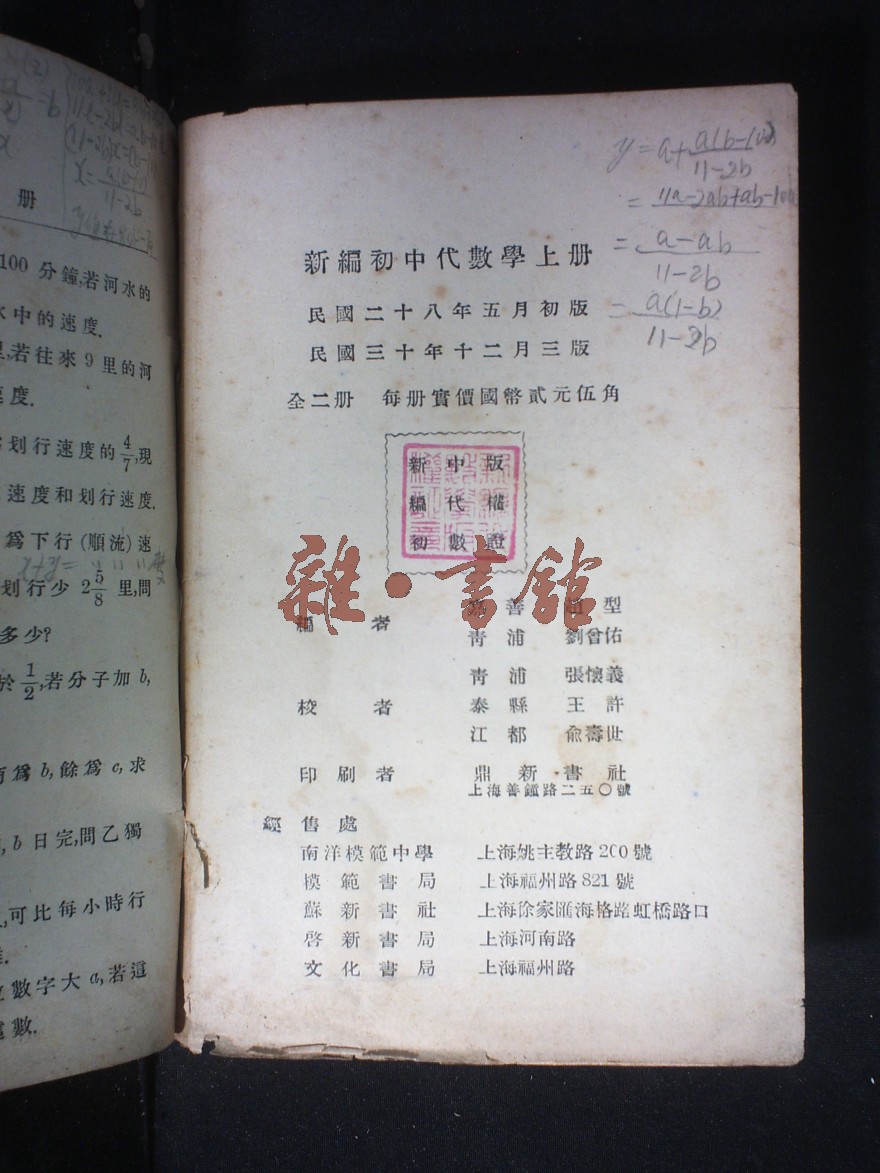 册
100 分鐘,若河水的
水中的速度.
里,若往來 9 里的河
速度.
划行速度的 4/7,現
速度和划行速度.
爲下行 (順流) 速
x+y=
划行少 2 5/8 里,問
多少?
於 1/2,若分子加 b,
爲 b, 餘爲 c, 求
, b 日完,問乙獨
,可比每小時行
數字大 a,若這
數.
y=a+a(b-10)/11-2b
=11a-2ab+ab-10a
=a-ab/11-2b
=a(1-b)/11-2b
新編初中代數學上册
民國二十八年五月初版
民國三十年十二月三版
全二册 每册實價國幣貳元伍角
新中版
編代權
初數證
雜·書館
編者 善 型
青浦 劉曾佑
青浦 張懷義
校者 泰縣 王許
江都 俞壽世
印刷者 鼎新書社
上海善鐘路二五〇號
經售處
南洋模範中學 上海姚主教路200號
模範書局 上海福州路821號
蘇新書社 上海徐家匯海格路虹橋路口
啓新書局 上海河南路
文化書局 上海福州路